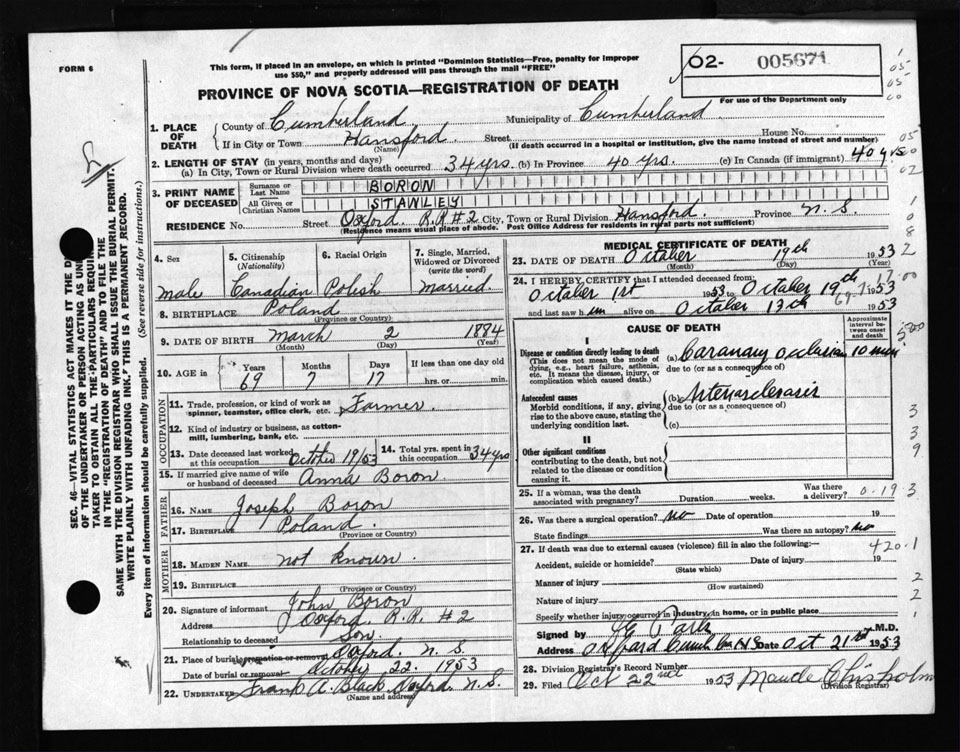 FORM 6
This form, if placed in an envelope, on which is printed "Dominion Statistics—Free, penalty for improper
use $50," and properly addressed will pass through the mail "FREE"
02- 005671
For use of the Department only
PROVINCE OF NOVA SCOTIA—REGISTRATION OF DEATH
1. PLACE OF DEATH
County of Cumberland Municipality of Cumberland
If in City or Town Hansford Street House No.
(Name) (If death occurred in a hospital or institution, give the name instead of street and number)
2. LENGTH OF STAY (in years, months and days)
(a) In City, Town or Rural Division where death occurred 34 yrs. (b) In Province 40 yrs. (c) In Canada (if immigrant) 40 yrs
3. PRINT NAME OF DECEASED
Surname or Last Name BORON
All Given or Christian Names STANLEY
RESIDENCE No. Street Oxford R.R #2 City, Town or Rural Division Hansford. Province N.S.
(Residence means usual place of abode. Post Office Address for residents in rural parts not sufficient)
4. Sex
male
5. Citizenship
(Nationality)
Canadian
6. Racial Origin
Polish
7. Single, Married,
Widowed or Divorced
(write the word)
Married.
8. BIRTHPLACE Poland
(Province or Country)
9. DATE OF BIRTH March 2 1884
(Month) (Day) (Year)
10. AGE in
Years Months Days If less than one day old
69 7 17 hrs. or min.
OCCUPATION
11. Trade, profession, or kind of work as
spinner, teamster, office clerk, etc. Farmer.
12. Kind of industry or business, as cotton-
mill, lumbering, bank, etc.
13. Date deceased last worked
at this occupation October 19/53
14. Total yrs. spent in
this occupation 34 yrs
15. If married give name of wife
or husband of deceased Anna Boron.
FATHER
16. NAME Joseph Boron
17. BIRTHPLACE Poland.
(Province or Country)
MOTHER
18. MAIDEN NAME not known
19. BIRTHPLACE
(Province or Country)
20. Signature of informant John Boron
Address Oxford. R.R. #2
Relationship to deceased Son.
21. Place of burial, cremation or removal Oxford. N.S.
Date of burial or removal October 22. 1953
22. UNDERTAKER Frank A. Black. Oxford. N.S.
(Name and address)
MEDICAL CERTIFICATE OF DEATH
23. DATE OF DEATH October 19th 1953
(Month) (Day) (Year)
24. I HEREBY CERTIFY that I attended deceased from:
October 1st 1953 to October 19th 1953
and last saw him alive on October 13th 1953
CAUSE OF DEATH
Approximate
interval be-
tween onset
and death
I
Disease or condition directly leading to death
(This does not mean the mode of
dying, e.g., heart failure, asthenia,
etc. It means the disease, injury, or
complication which caused death.)
(a) Coronary occlusion 10 min
due to (or as a consequence of)
Antecedent causes
Morbid conditions, if any, giving
rise to the above cause, stating the
underlying condition last.
(b) Arteriosclerosis
due to (or as a consequence of)
(c)
II
Other significant conditions
contributing to the death, but not
related to the disease or condition
causing it.
25. If a woman, was the death
associated with pregnancy? Duration weeks. Was there
a delivery?
0-19-3
26. Was there a surgical operation? No Date of operation 19
State findings Was there an autopsy? No
27. If death was due to external causes (violence) fill in also the following:—
420.1
Accident, suicide or homicide? Date of injury 19
(State which)
Manner of injury
(How sustained)
Nature of injury
Specify whether injury occurred in industry, in home, or in public place
Signed by M.D.
Address Oxford Cumb. Co. N.S. Date Oct 21st 1953
28. Division Registrar's Record Number
29. Filed Oct 22nd 1953 Maude Chisholm
(Division Registrar)
SEC. 46—VITAL STATISTICS ACT MAKES IT THE
OF THE UNDERTAKER OR PERSON ACTING AS
TAKER TO OBTAIN ALL THE PARTICULARS
IN THE "REGISTRATION OF DEATH" AND TO FILE THE
SAME WITH THE DIVISION REGISTRAR WHO SHALL ISSUE THE BURIAL PERMIT.
WRITE PLAINLY WITH UNFADING INK. THIS IS A PERMANENT RECORD.
Every item of information should be carefully supplied. (See reverse side for instructions.)